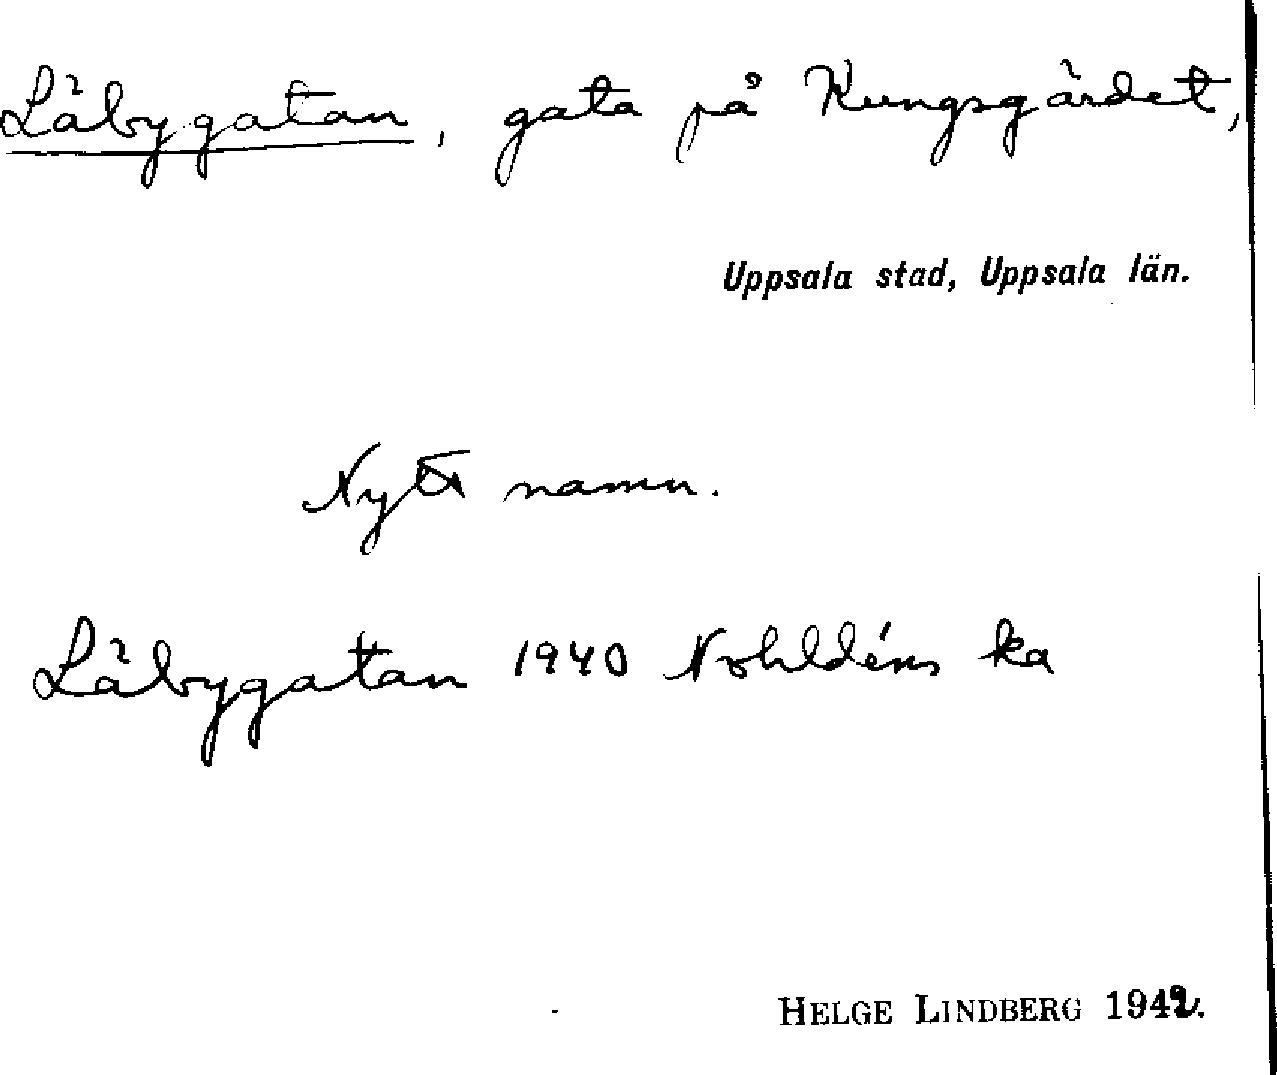 Läbygatan, gata på Kungsgärdet,
Uppsala stad, Uppsala län.
Nytt namn.
Läbygatan 1940 Nohldéns ka
HELGE LINDBERG 1942.